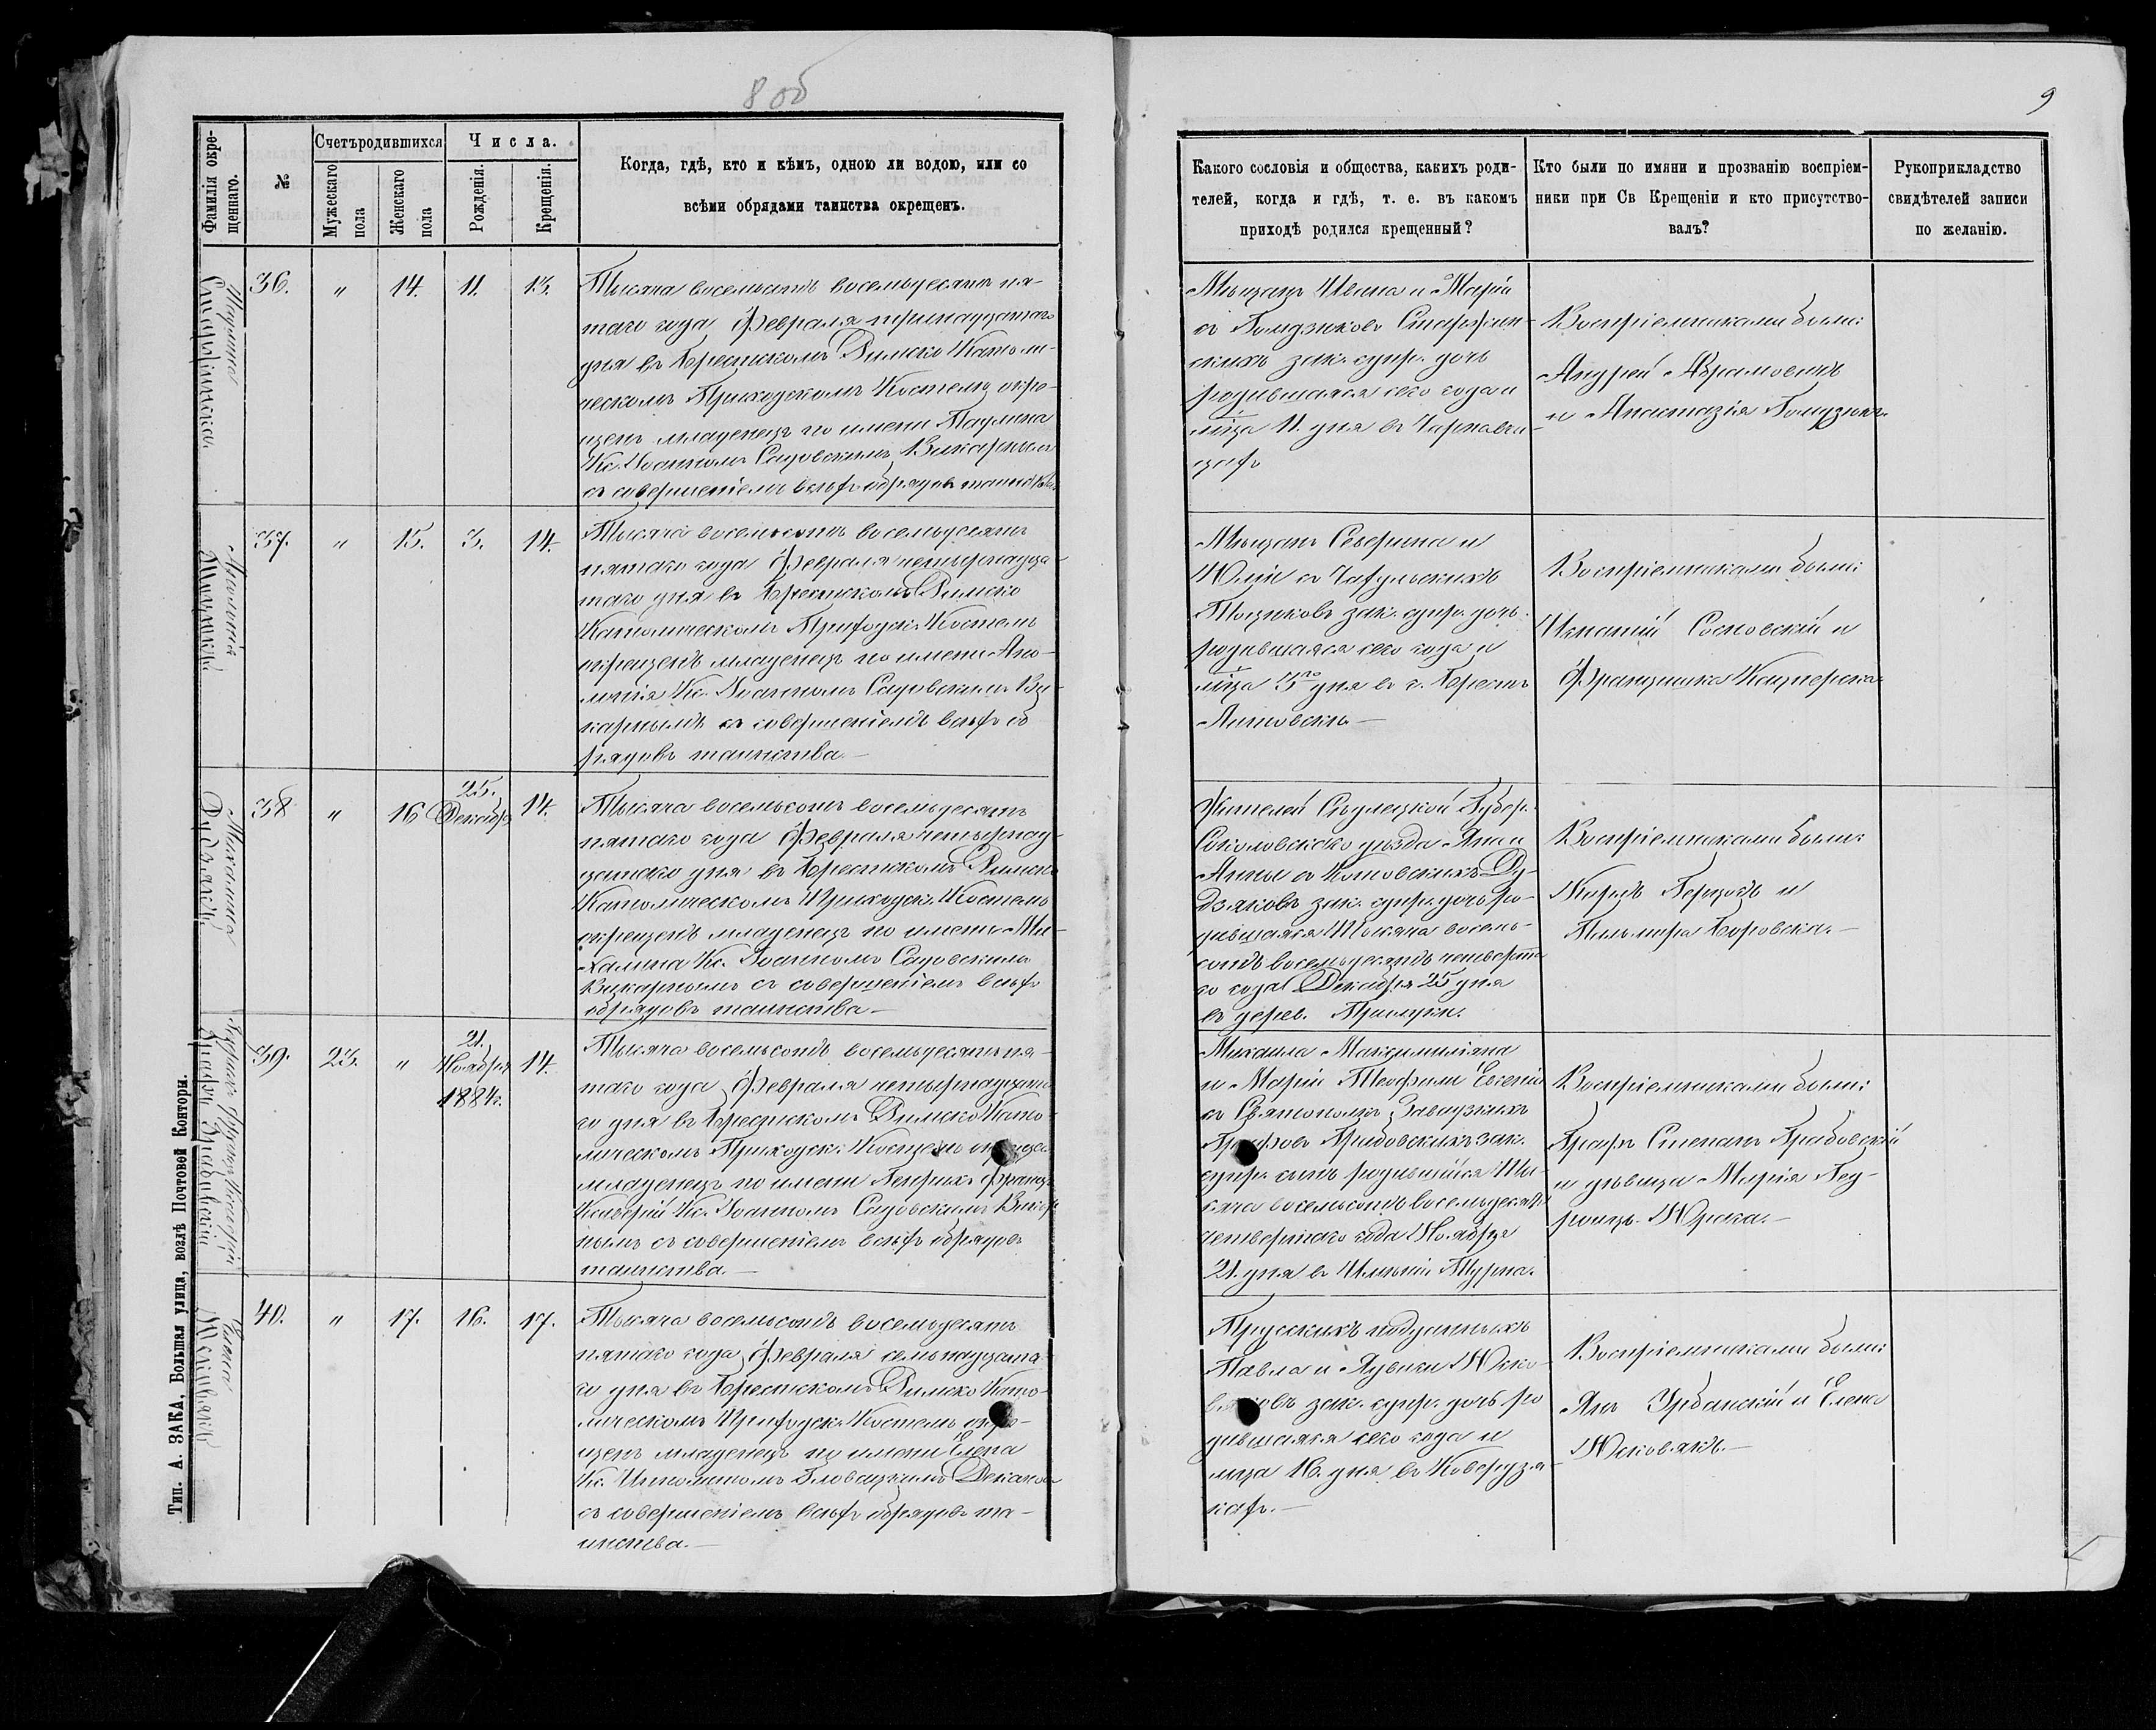 8 об
9
Фамилія окре-
щеннаго.
№
Счетъ родившихся
Мужескаго
пола
Женскаго
пола
Числа.
Рожденія.
Крещенія.
Когда, гдѣ, кто и кѣмъ, одною ли водою, или со
всѣми обрядами таинства окрещенъ.
Какого сословія и общества, какихъ роди-
телей, когда и гдѣ, т. е. въ какомъ
приходѣ родился крещенный?
Кто были по имяни и прозванію воспріем-
ники при Св Крещеніи и кто присутство-
валъ?
Рукоприкладство
свидѣтелей записи
по желанію.
Паулина
36.
"
14.
11.
13.
Тысяча восемьсотъ восемьдесятъ пя-
таго года Февраля тринадцатаго
дня въ Брестскомъ Римско Католи-
ческомъ Приходскомъ Костелѣ окре-
щенъ младенецъ по имени Паулина
Кс. Іоанномъ Садовскимъ Викарнымъ
съ совершеніемъ всѣхъ обрядовъ таинства
Мѣщанъ Ивана и Маріи
скихъ зак. супр. дочь
родившаяся сего года и
мѣца 11. дня въ Чарнавчи-
цахъ
Воспріемниками были:
Андрей Абрамовичъ
и Анастазія
37.
"
15.
3.
14.
Тысяча восемьсотъ восемьдесятъ
пятаго года Февраля четырнадца-
таго дня въ Брестскомъ Римско
Католическомъ Приходск. Костелѣ
окрещенъ младенецъ по имени Апо-
лонія Кс. Іоанномъ Садовскимъ Ви-
карнымъ съ совершеніемъ всѣхъ об
рядовъ таинства.—
Мѣщанъ Северина и
Юліи съ
зак. супр. дочь
родившаяся сего года и
мѣца 3го дня въ г. Брестѣ
Литовскѣ—
Воспріемниками были:
Игнатій Сосновскій и
Францишка Кацперска
Михалина
Дудзякъ
38
"
16
25.
Декабр.
14.
Тысяча восемьсотъ восемьдесятъ
пятаго года Февраля четырнад-
цатаго дня въ Брестскомъ Римско
Католическомъ Приходск. Костелѣ
окрещенъ младенецъ по имени Ми-
халина Кс. Іоанномъ Садовскимъ
Викарнымъ съ совершеніемъ всѣхъ
обрядовъ таинства—
Жителей Сѣдлецкой Губер.
Соколовскаго уѣзда Яна и
Анны съ Котовскихъ Ду-
дзяковъ зак. супр. дочь ро-
дившаяся Тысяча восемь-
сотъ восемьдесятъ четверта-
го года Декабря 25 дня
въ дерев. Прилуки.
Воспріемниками были:
Кароль и
Пальмира Боровска.—
39.
23.
"
21.
Ноября
1884г.
14.
Тысяча восемьсотъ восемьдесятъ пя-
таго года Февраля четырнадцата-
го дня въ Брестскомъ Римско Като-
лическомъ Приходск. Костелѣ окрещенъ
младенецъ по имени Генрихъ Францъ
Ксаверій Кс. Іоанномъ Садовскимъ Викар-
нымъ съ совершеніемъ всѣхъ обрядовъ
таинства.—
Михаила Максимиліана
и Маріи Теофили Евгеніи
съ Святополкъ Завадзкихъ
Графовъ Грабовскихъ зак.
супр. сынъ родившійся Ты-
сяча восемьсотъ восемьдесятъ
четвертаго года Ноября
21. дня въ Имѣніи Турна.
Воспріемниками были:
Графъ Степанъ Грабовскій
и дѣвица Марія Гед-
ройцъ Юрска.—
Елена
40.
"
17.
16.
17.
Тысяча восемьсотъ восемьдесятъ
пятаго года Февраля семнадцата-
го дня въ Брестскомъ Римско Като-
лическомъ Приходск. Костелѣ окре-
щенъ младенецъ по имени Елена
Кс. Деканомъ
съ совершеніемъ всѣхъ обрядовъ та-
инства.—
Прусскихъ подданныхъ
Павла и Ядвиги
зак. супр. дочь ро
дившаяся сего года и
мѣца 16. дня въ Ковердзя-
кахъ.—
Воспріемниками были:
Янъ Урбанскій и Елена
Тип. А. ЗАКА, Большая улица, возлѣ Почтовой Конторы.